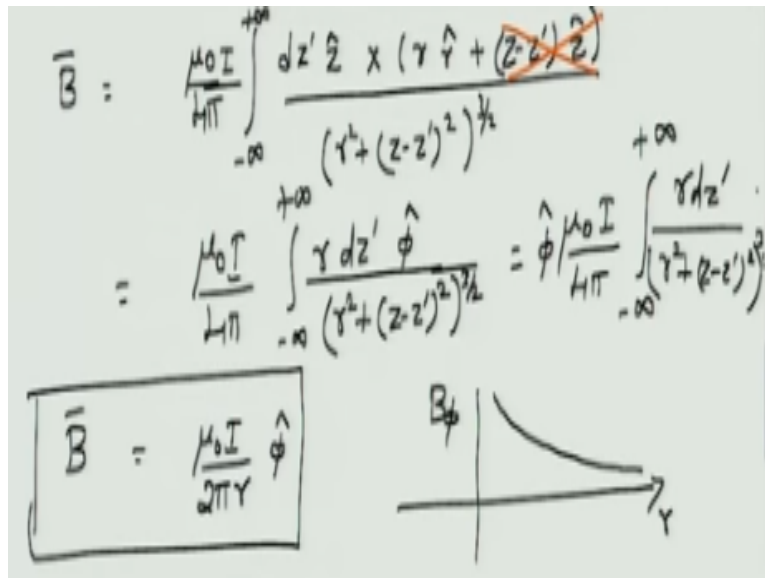 B̄ = μ₀I/4π ∫_{-∞}^{+∞} dz' ẑ × (r r̂ + (z-z') ẑ) / (r² + (z-z')²)^{3/2}
= μ₀I/4π ∫_{-∞}^{+∞} r dz' φ̂ / (r² + (z-z')²)^{3/2} = φ̂ μ₀I/4π ∫_{-∞}^{+∞} r dz' / (r² + (z-z')²)^3
B̄ = μ₀I/2πr φ̂
Bφ
r